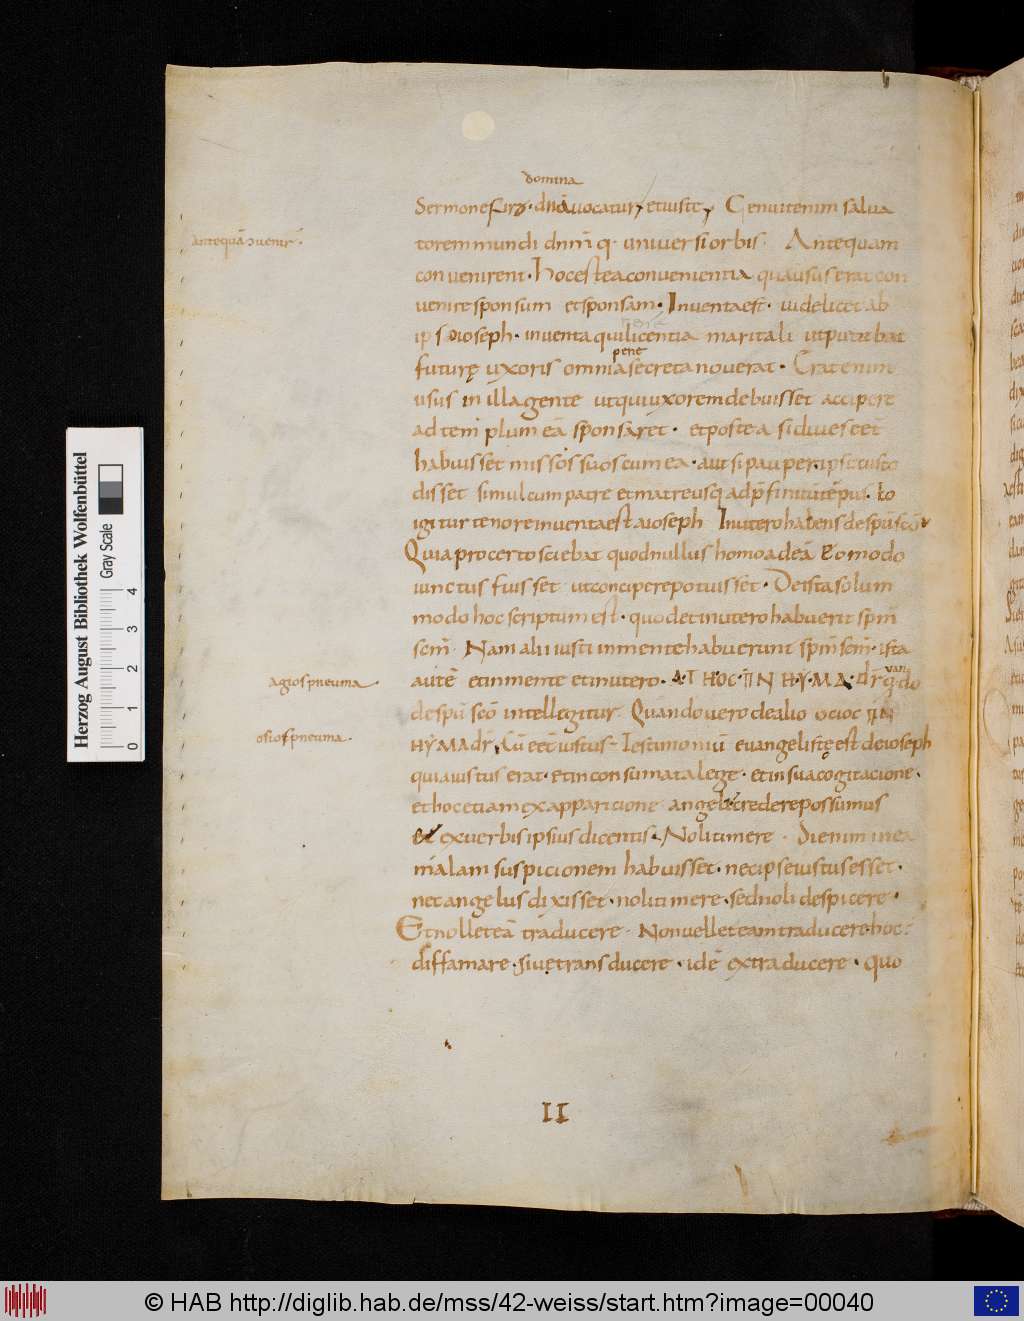 domina
Sermone siro· dn̄a vocatur, et iuste, Genuit enim salva
antequā ɔvenir̄·
torem mundi dn̄m q· universi orbis· Antequam
convenirent· hoc est ea convenientia qua usus erat con
venire sponsum et sponsam· Inventa est· videlicet ab
ipso ioseph· inventa qui licentia maritali utputabat
pene
futurę uxoris omnia secreta noverat· Erat enim
usus in illa gente ut qui uxorem debuisset accipere
ad tem plum eā sponsaret· et postea si dives eet
habuisset missos suos cum ea· aut si pauper· ipse custo
disset simul cum patre et matre usq; ad p̄finitū tēpus· Eo
igitur tenore inventa est a ioseph In utero habens de sp̄u sc̄o
Quia pro certo sciebat quod nullus homo ad eā eo modo
iunctus fuisset ut concipere potuisset· De ista solum
modo hoc scriptum est· quod et in utero habuerit sp̄m
sc̄m· Nam alii iusti in mente habuerunt sp̄m sc̄m· ista
agios pneuma·
autē et in mente et in utero·
de sp̄u sc̄o intellegitur· Quando vero de alio
osios pneuma·
HYMA dr̄, Cū eet iustus- Testimoniū evangelistę est de ioseph
quia iustus erat· et in consumata lege· et in sua cogitacione·
et hoc etiam ex apparicione angeli credere possumus
et ex verbis ipsius dicentis· Noli timere· Si enim in ea
malam suspicionem habuisset· nec ipse iustus esset·
nec angelus dixisset· noli timere· sed noli despicere·
Et nollet eā traducere· Non vellet eam traducere hoc:
diffamare· sive transducere· idē extraducere· quo
II
Herzog August Bibliothek Wolfenbüttel
Gray Scale
0 1 2 3 4
© HAB http://diglib.hab.de/mss/42-weiss/start.htm?image=00040